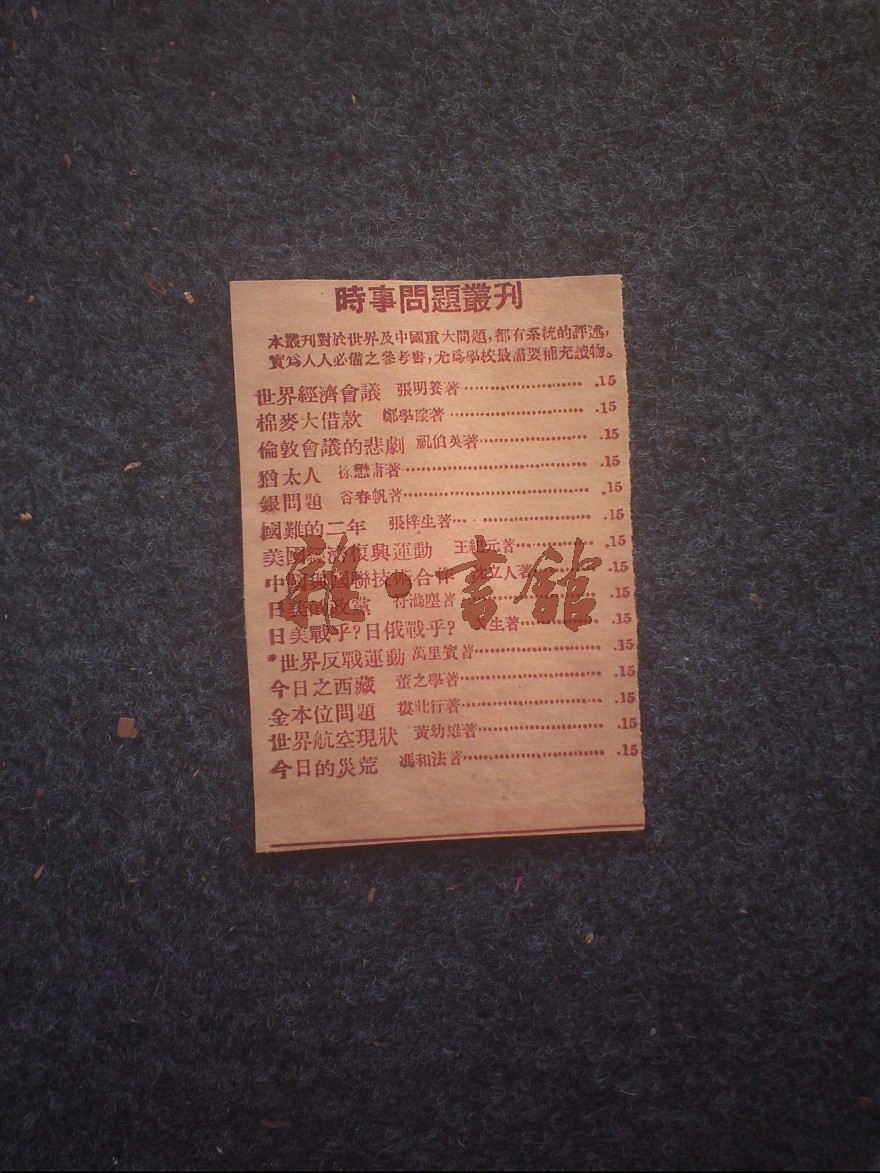 時事問題叢刊
本叢刊對於世界及中國重大問題,都有系統的評述,
實爲人人必備之參考書,尤爲學校最需要補充讀物。
世界經濟會議 張明養著 .15
棉麥大借款 鄭學蔭著 .15
倫敦會議的悲劇 祝伯英著 .15
猶太人 徐懋庸著 .15
銀問題 谷春帆著 .15
國難的二年 張梓生著 .15
美國經濟復興運動 王紀元著 .15
中國與國聯技術合作 沈立人著 .15
日美戰乎?日俄戰乎? 生著 .15
*世界反戰運動 萬里賓著 .15
今日之西藏 董之學著 .15
金本位問題 婁壯行著 .15
世界航空現狀 黃幼雄著 .15
今日的災荒 馮和法著 .15
雜·書館